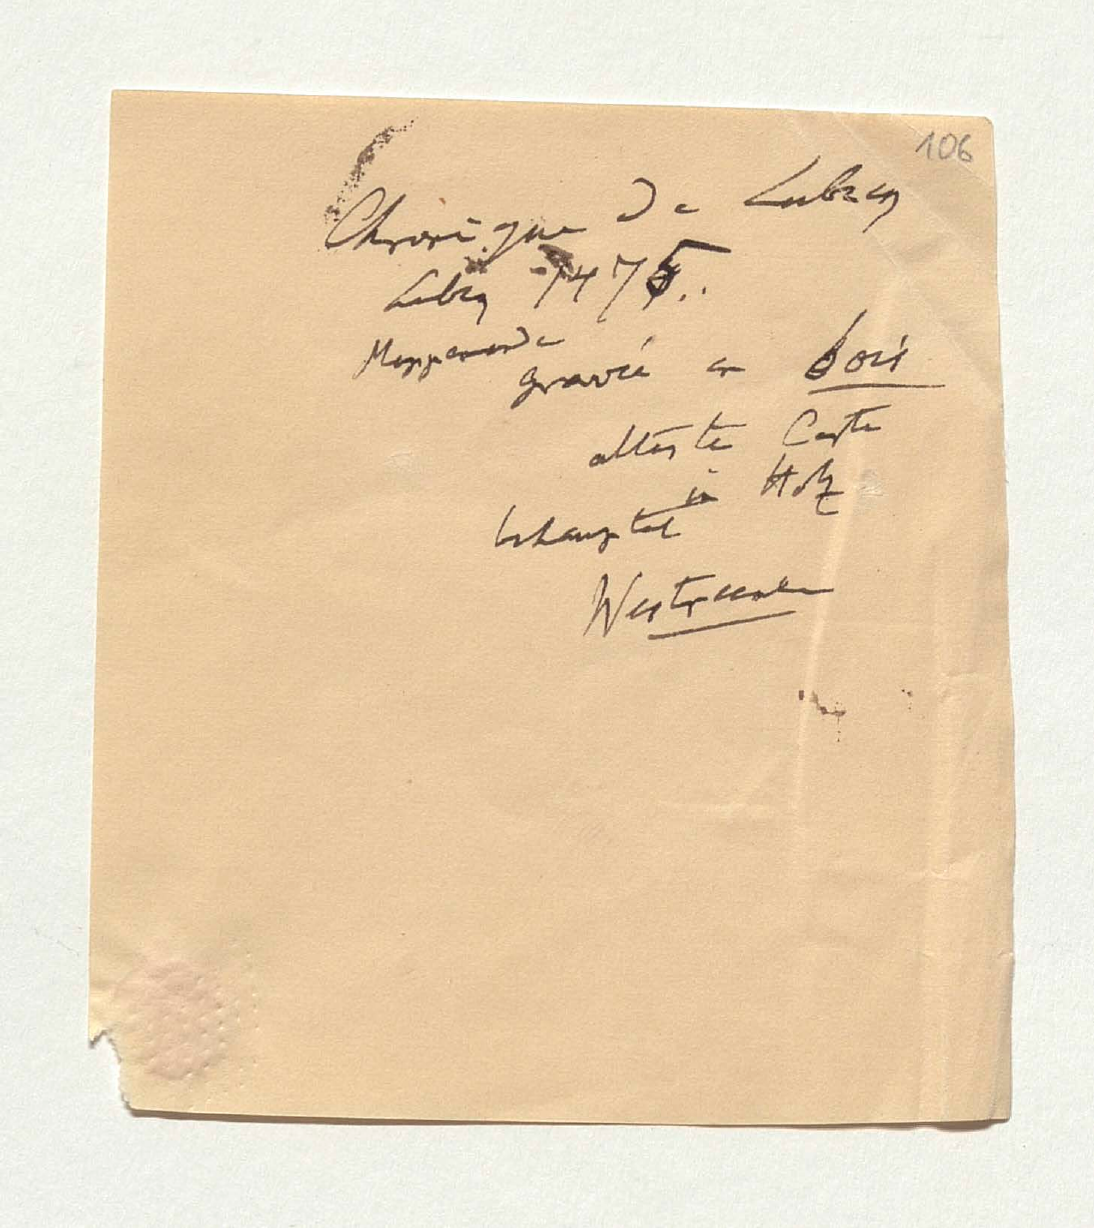 106
Chronique de Lubec
Lubec 1475.
Mappemonde
gravée en bois
älteste Carte
in Holz
behauptet